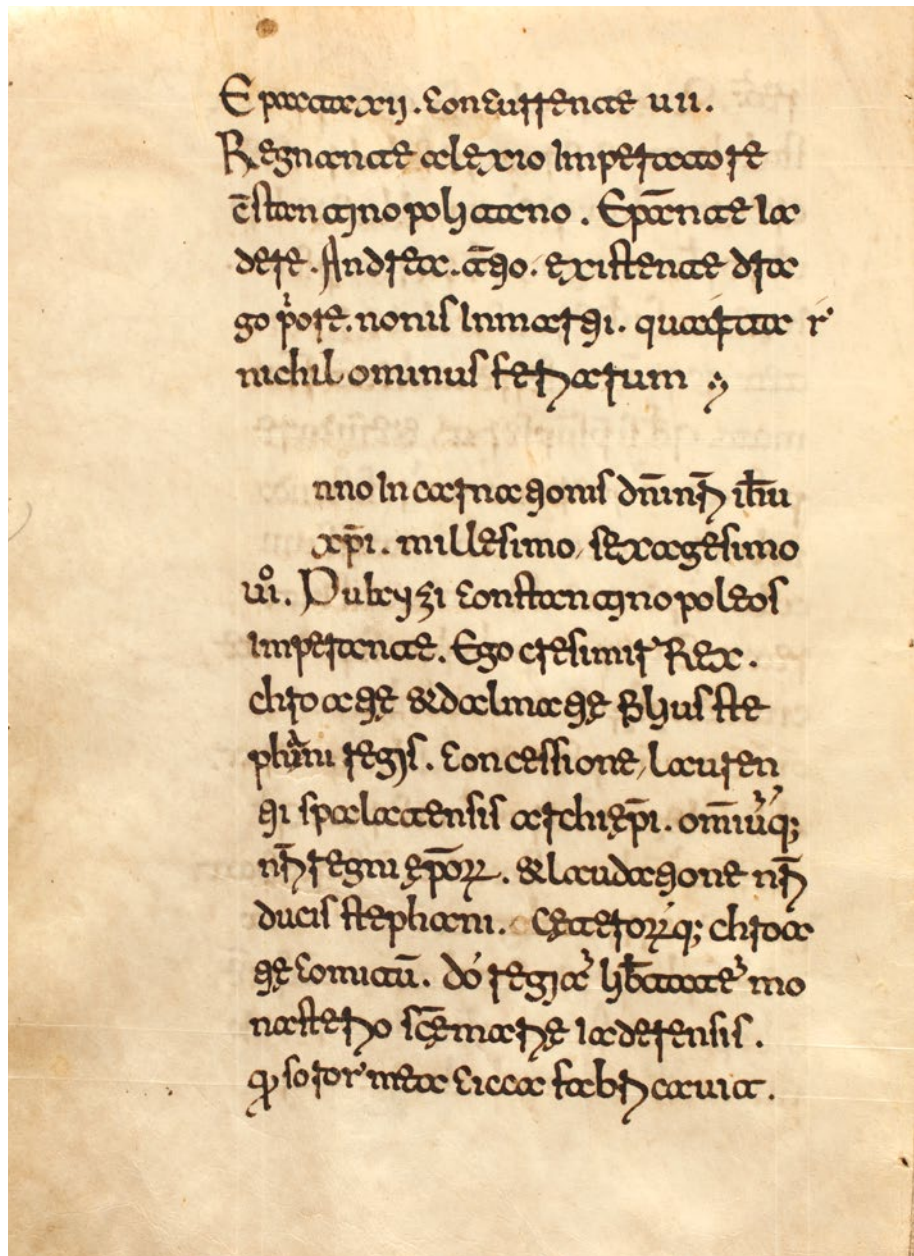 Epacta xii. Concurrente uii.
Regnante alexio Imperatore
c̄stantinopolitano. Ep̄ante Ia
dere. Andrea. āt̄io. existente dra
go p̓ore. nonis In martii. quarta r
nichilominus feriarum
nno In carnationis dn̄i nr̄i ih̄u
xp̄i. millesimo, sexagesimo
ui°. Dubcyzi constantinopoleos
imperante. Ego cresimir Rex.
chroatię & dalmatię filius ste
phani regis. Concessione, lauren
tii spalatensis archiep̄i. omiūq;
nr̄i regni ęp̄oꝝ. & laudatione nr̄i
ducis stephani. cęteroꝝq; chroa
tię comitū. dó regia hb̄tate mo
nasterio scę marię Iaderensis.
ꝓ soror mea cicca fabricauit.